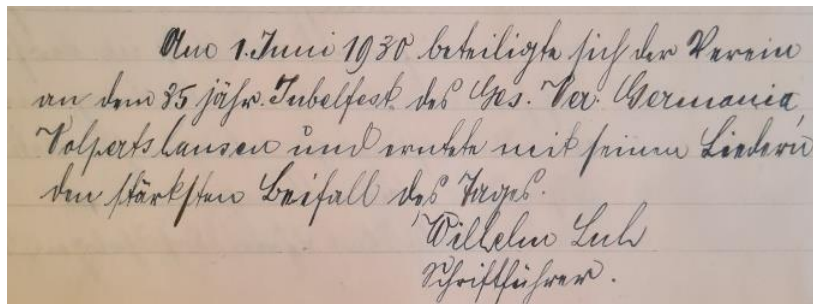 Am 1. Juni 1930 beteiligte sich der Verein
an dem 35 jähr. Jubelfest des Ges. Ver. Germania,
Volpertshausen und erntete mit seinen Liedern
den stärksten Beifall des Tages.
Wilhelm Luh
Schriftführer.